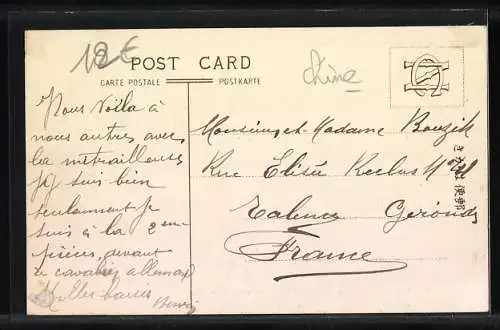 18€
POST CARD
CARTE POSTALE
POSTKARTE
chine
Nous Voila à
nous autres avec
les mitrailleuses
suis bien
seulement je
suis à la 2em
pièces, devant
le cavalier allemand
Milles baisers
Henri
Monsieur et Madame Bouzik
Rue Elisée Reclus Nº
Talence Gironde
France
きかは便郵